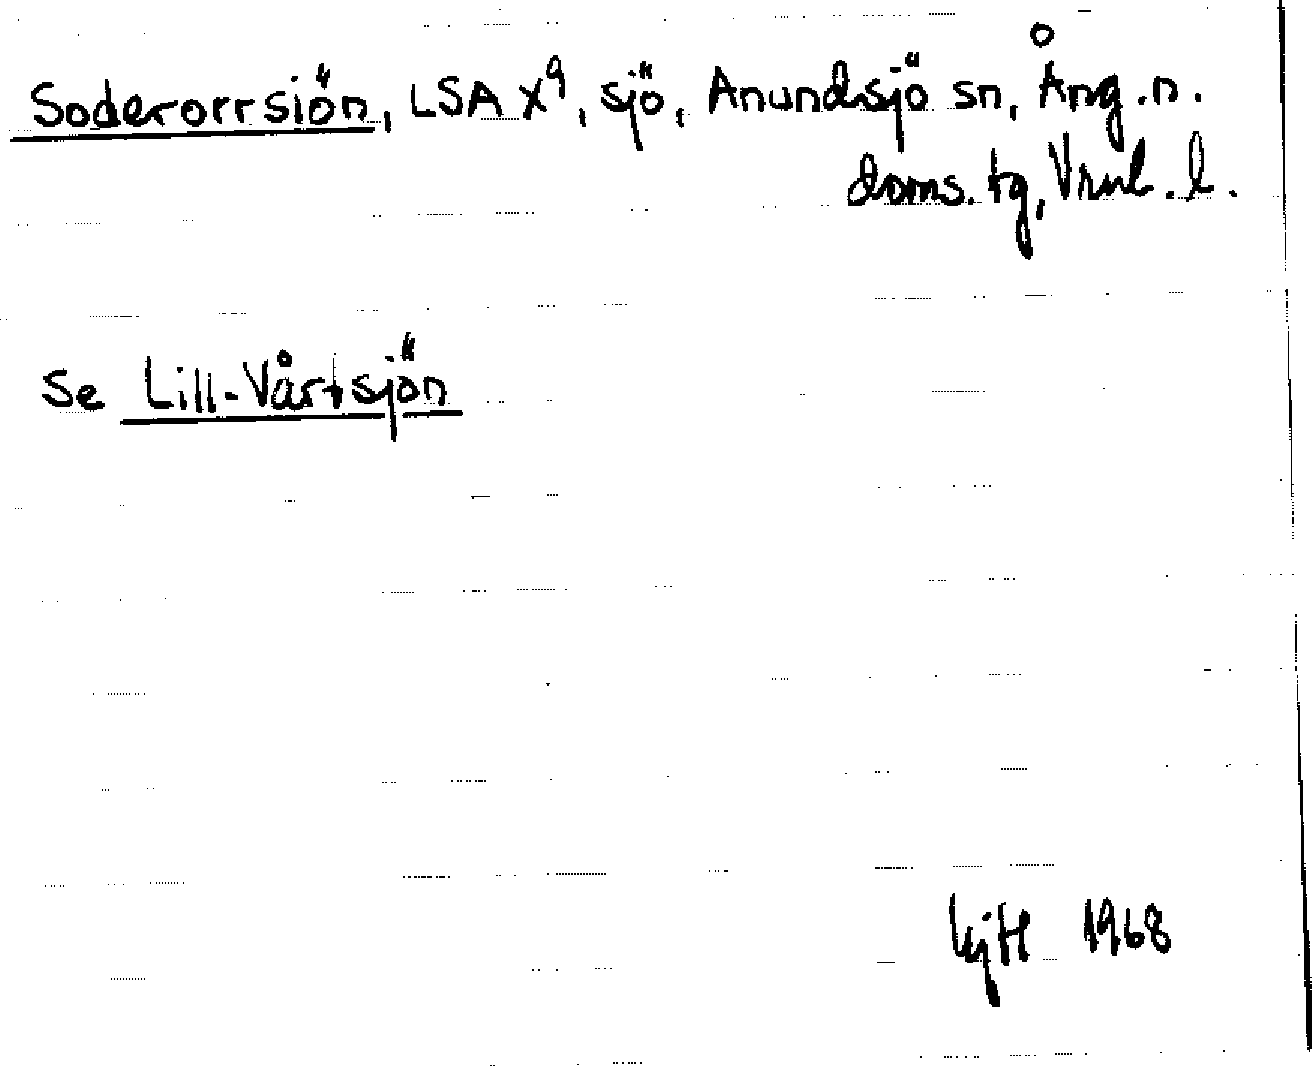 Soderorrsiön, LSA X9, sjö, Anundsjö sn, Ång. n.
doms. tg, Vrnl. l.
Se Lill-Vårtsjön
1968